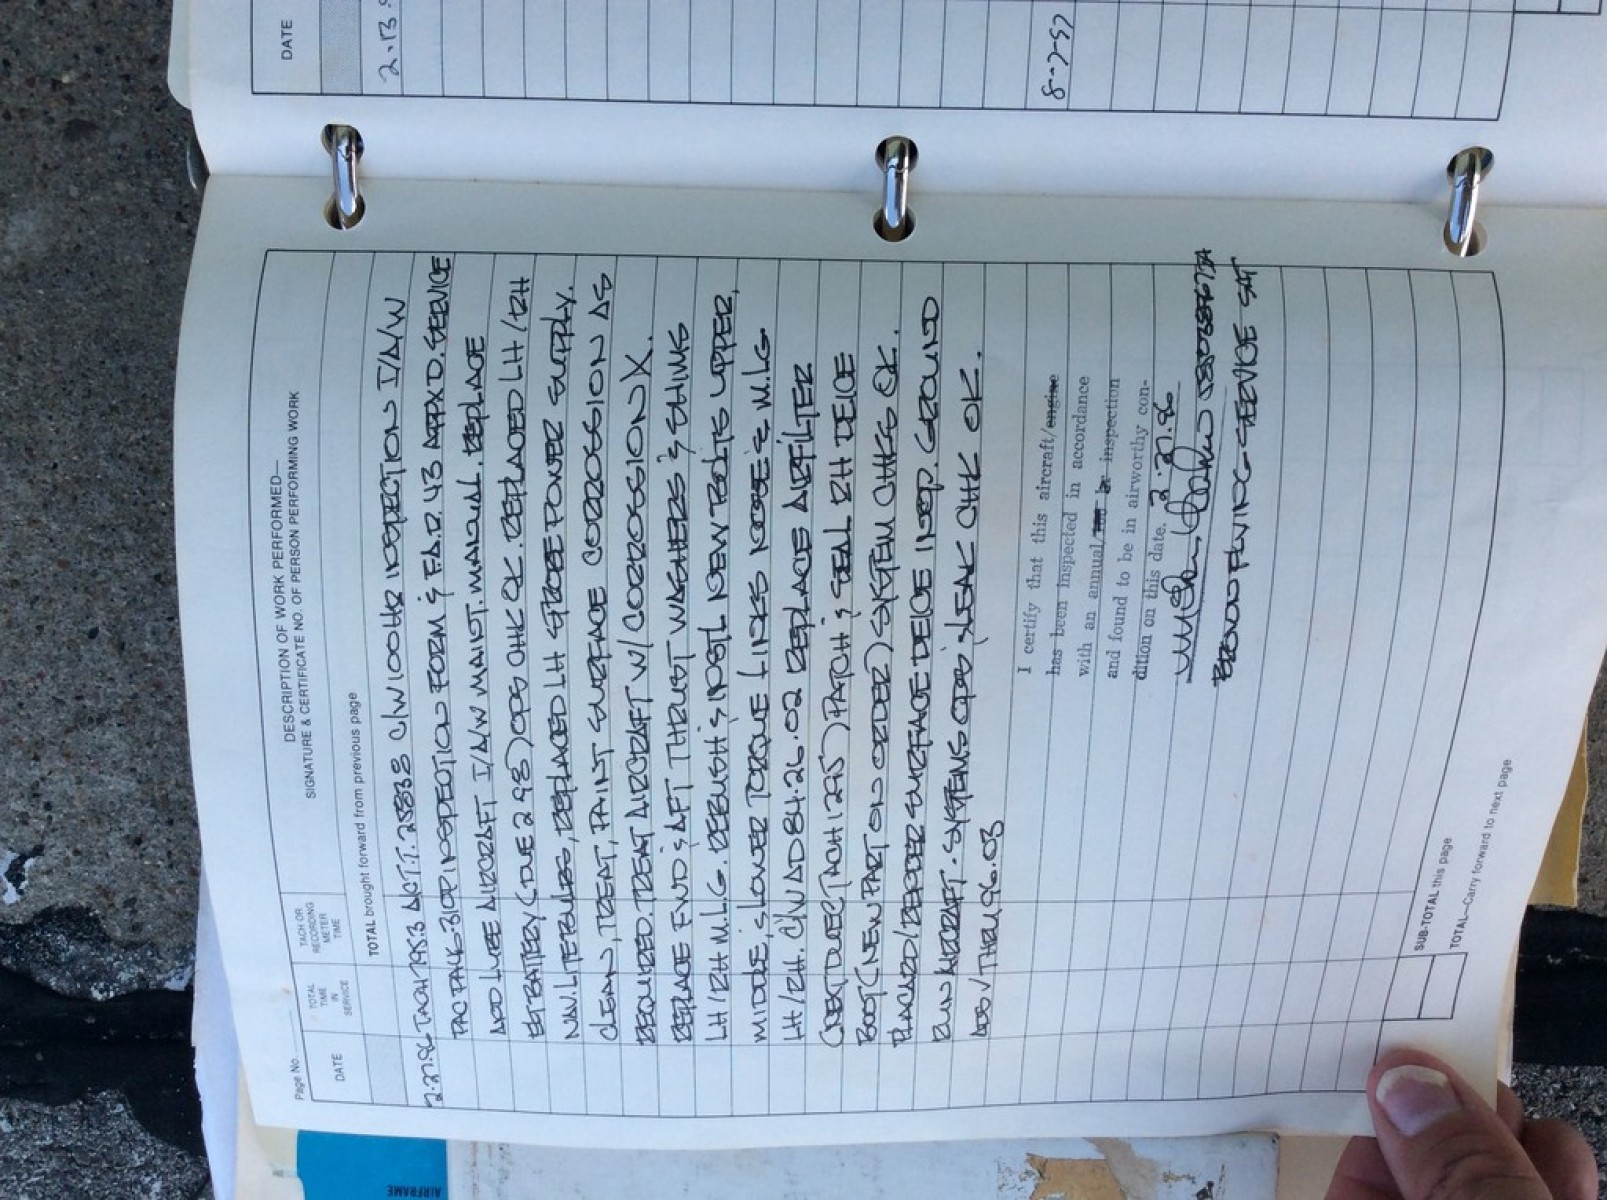 DATE
2.13.
8-7-57
Page No.
DATE
TOTAL TIME IN SERVICE
TACH OR RECORDING METER TIME
DESCRIPTION OF WORK PERFORMED—
SIGNATURE & CERTIFICATE NO. OF PERSON PERFORMING WORK
TOTAL brought forward from previous page
2.27.86 TACH 795.3 ACT.T. 2583.8 C/W 100HR INSPECTION I/A/W
INSPECTION FORM & F.A.R. 43 APPX D. SERVICE
AND LUBE AIRCRAFT I/A/W MAINT. MANUAL. REPLACE
BATTERY (DUE 2.98) OPS CHK OK. REPLACED LH/RH
NAV LITE BULBS, REPLACED LH STROBE POWER SUPPLY.
CLEAN, TREAT, PAINT SURFACE CORROSSION AS
REQUIRED. TREAT AIRCRAFT W/ CORROSSION X.
REPLACE FWD & AFT THRUST WASHERS & SHIMS
LH/RH M.L.G. REBUSH & INSTL NEW BOLTS UPPER,
MIDDLE, & LOWER TORQUE LINKS NOSE & M.L.G
LH/RH. C/W AD 84.26.02 REPLACE AIR FILTER
(NEXT DUE TACH 1295) PATCH & SEAL RH DEICE
BOOT (NEW PART ON ORDER) SYSTEM CHKS OK.
SURFACE DEICE INSP. GROUND
RUN AIRCRAFT. SYSTEMS OPS & LEAK CHK OK.
ADS √ THRU 96.03
I certify that this aircraft/engine
has been inspected in accordance
with an annual/100 hr inspection
and found to be in airworthy con-
dition on this date. 2.27.86
FLYING SERVICE SAT
SUB-TOTAL this page
TOTAL—Carry forward to next page
AIRFRAME